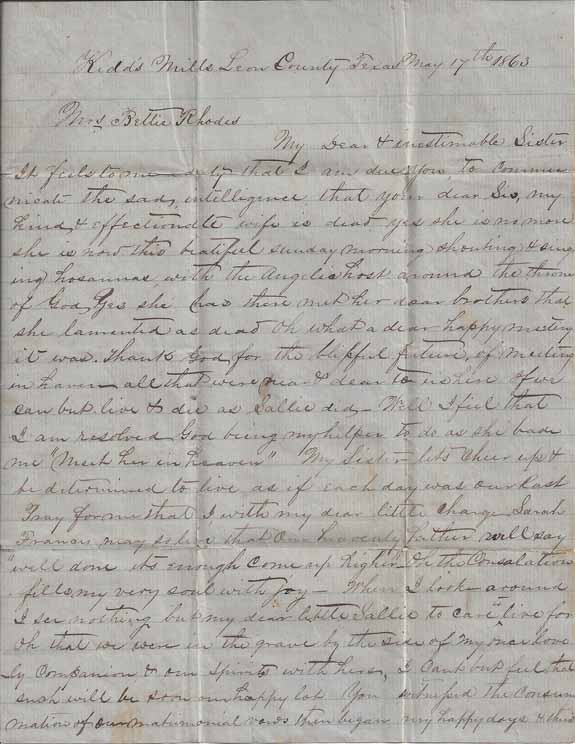 Kidd's Mills Leon County Texas May 17th 1863
Mrs Bettie Rhodes
My Dear & inestimable Sister
It feels to me a duty that I am due you to commu
nicate the sad, intelligence that your dear Sis, my
kind, & effectionate wife is dead yes she is no more
she is now this beatiful sunday morning shouting & sing
ing hosannas, with the Angelic host around the throne
of God, Yes she has there met her dear brothers that
she lamented as dead Oh what a dear happy meeting
it was. Thank God, for the blissful future, of meeting
in heaven all that were near & dear to us here If we
can but live & die as Sallie did, Well I feel that
I am resolved God being my helper to do as she bade
me "Meet her in heaven" My Sister lets cheer up &
be determined to live as if each day was our last
Pray for me that I with my dear little charge Sarah
Francis may so live that Our heavenly father will say
"well done its enough come up higher" Oh the Consalation
fills my very soul with joy — When I look around
I see nothing but my dear little Sallie to care & live for
Oh that we were in the grave by the side of my once love
ly Companion & our spirits with hers, I Cant but feel that
such will be soon our happy lot You witnessed the Consum
mation of our matrimonial vows then began my happy days & this